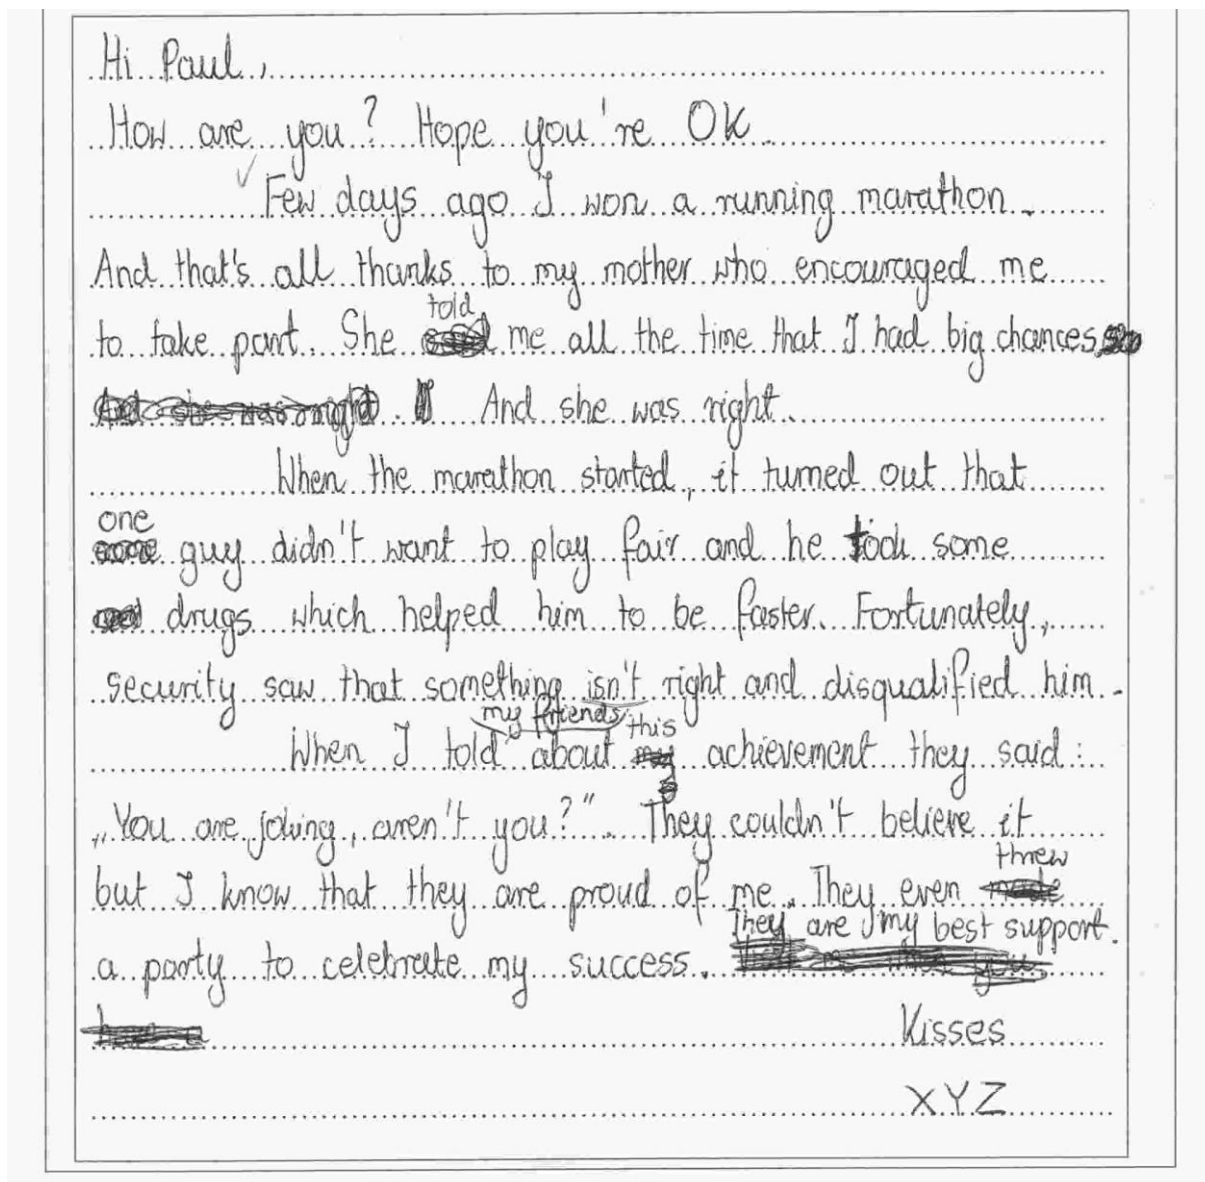 Hi Paul,
How are you? Hope you're OK
Few days ago I won a running marathon.
And that's all thanks to my mother who encouraged me
to take part. She told me all the time that I had big chances
And she was right.
When the marathon started, it turned out that
one guy didn't want to play fair and he took some
drugs which helped him to be faster. Fortunately,
security saw that something isn't right and disqualified him.
When I told my friends about this achievement they said:
„You are joking, aren't you?". They couldn't believe it
but I know that they are proud of me. They even threw
a party to celebrate my success. They are my best support.
Kisses
XYZ